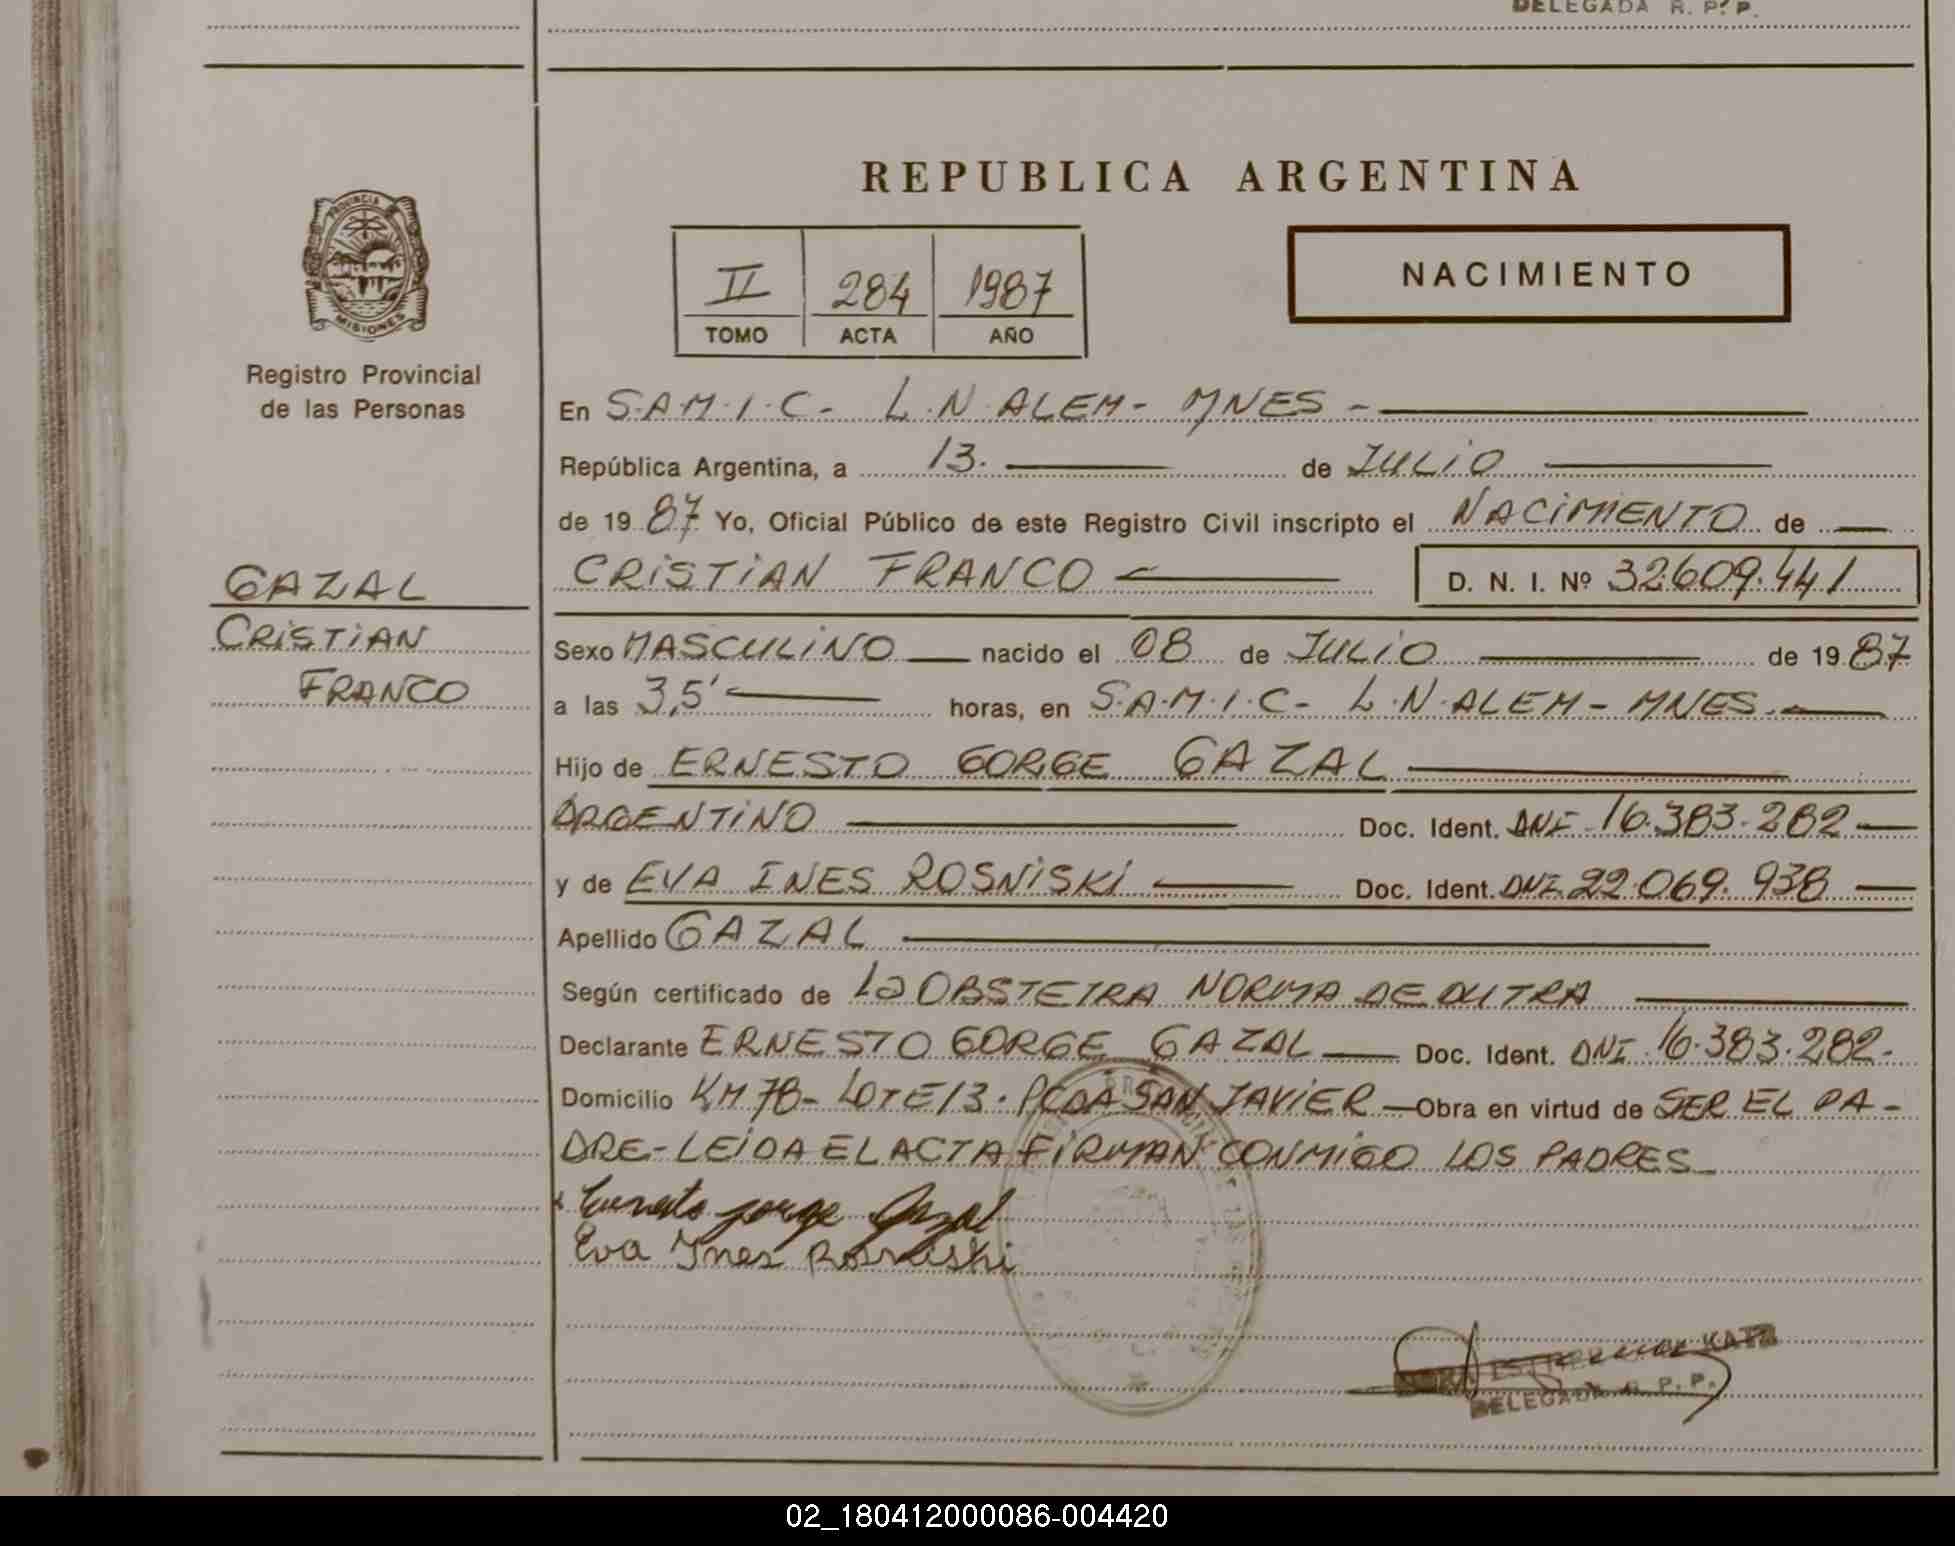 DELEGADA R. P. P.
REPUBLICA ARGENTINA
PROVINCIA DE
MISIONES
Registro Provincial
de las Personas
II 284 1987
TOMO ACTA AÑO
NACIMIENTO
En S.A.M.I.C- L.N.ALEM- MNES-
República Argentina, a 13. de JULIO
de 1987 Yo, Oficial Público de este Registro Civil inscripto el NACIMIENTO de
CRISTIAN FRANCO D. N. I. Nº 32.609.441
GAZAL
CRISTIAN
FRANCO
Sexo MASCULINO nacido el 08 de JULIO de 1987
a las 3,5' horas, en S.A.M.I.C- L.N.ALEM- MNES.
Hijo de ERNESTO GORGE GAZAL
ARGENTINO Doc. Ident. DNI 16.383.282
y de EVA INES ROSNISKI Doc. Ident. DNI 22.069.938
Apellido GAZAL
Según certificado de La OBSTETRA NORMA DE DUTRA
Declarante ERNESTO GORGE GAZAL Doc. Ident. DNI 16.383.282.
Domicilio KM 78- LOTE 13. PCDA SAN JAVIER Obra en virtud de SER EL PA-
DRE-LEIDA EL ACTA FIRMAN CONMIGO LOS PADRES
Ernesto jorge Gazal
Eva Ines Rosniski
KATZ
DELEGADA R. P. P.
02_180412000086-004420